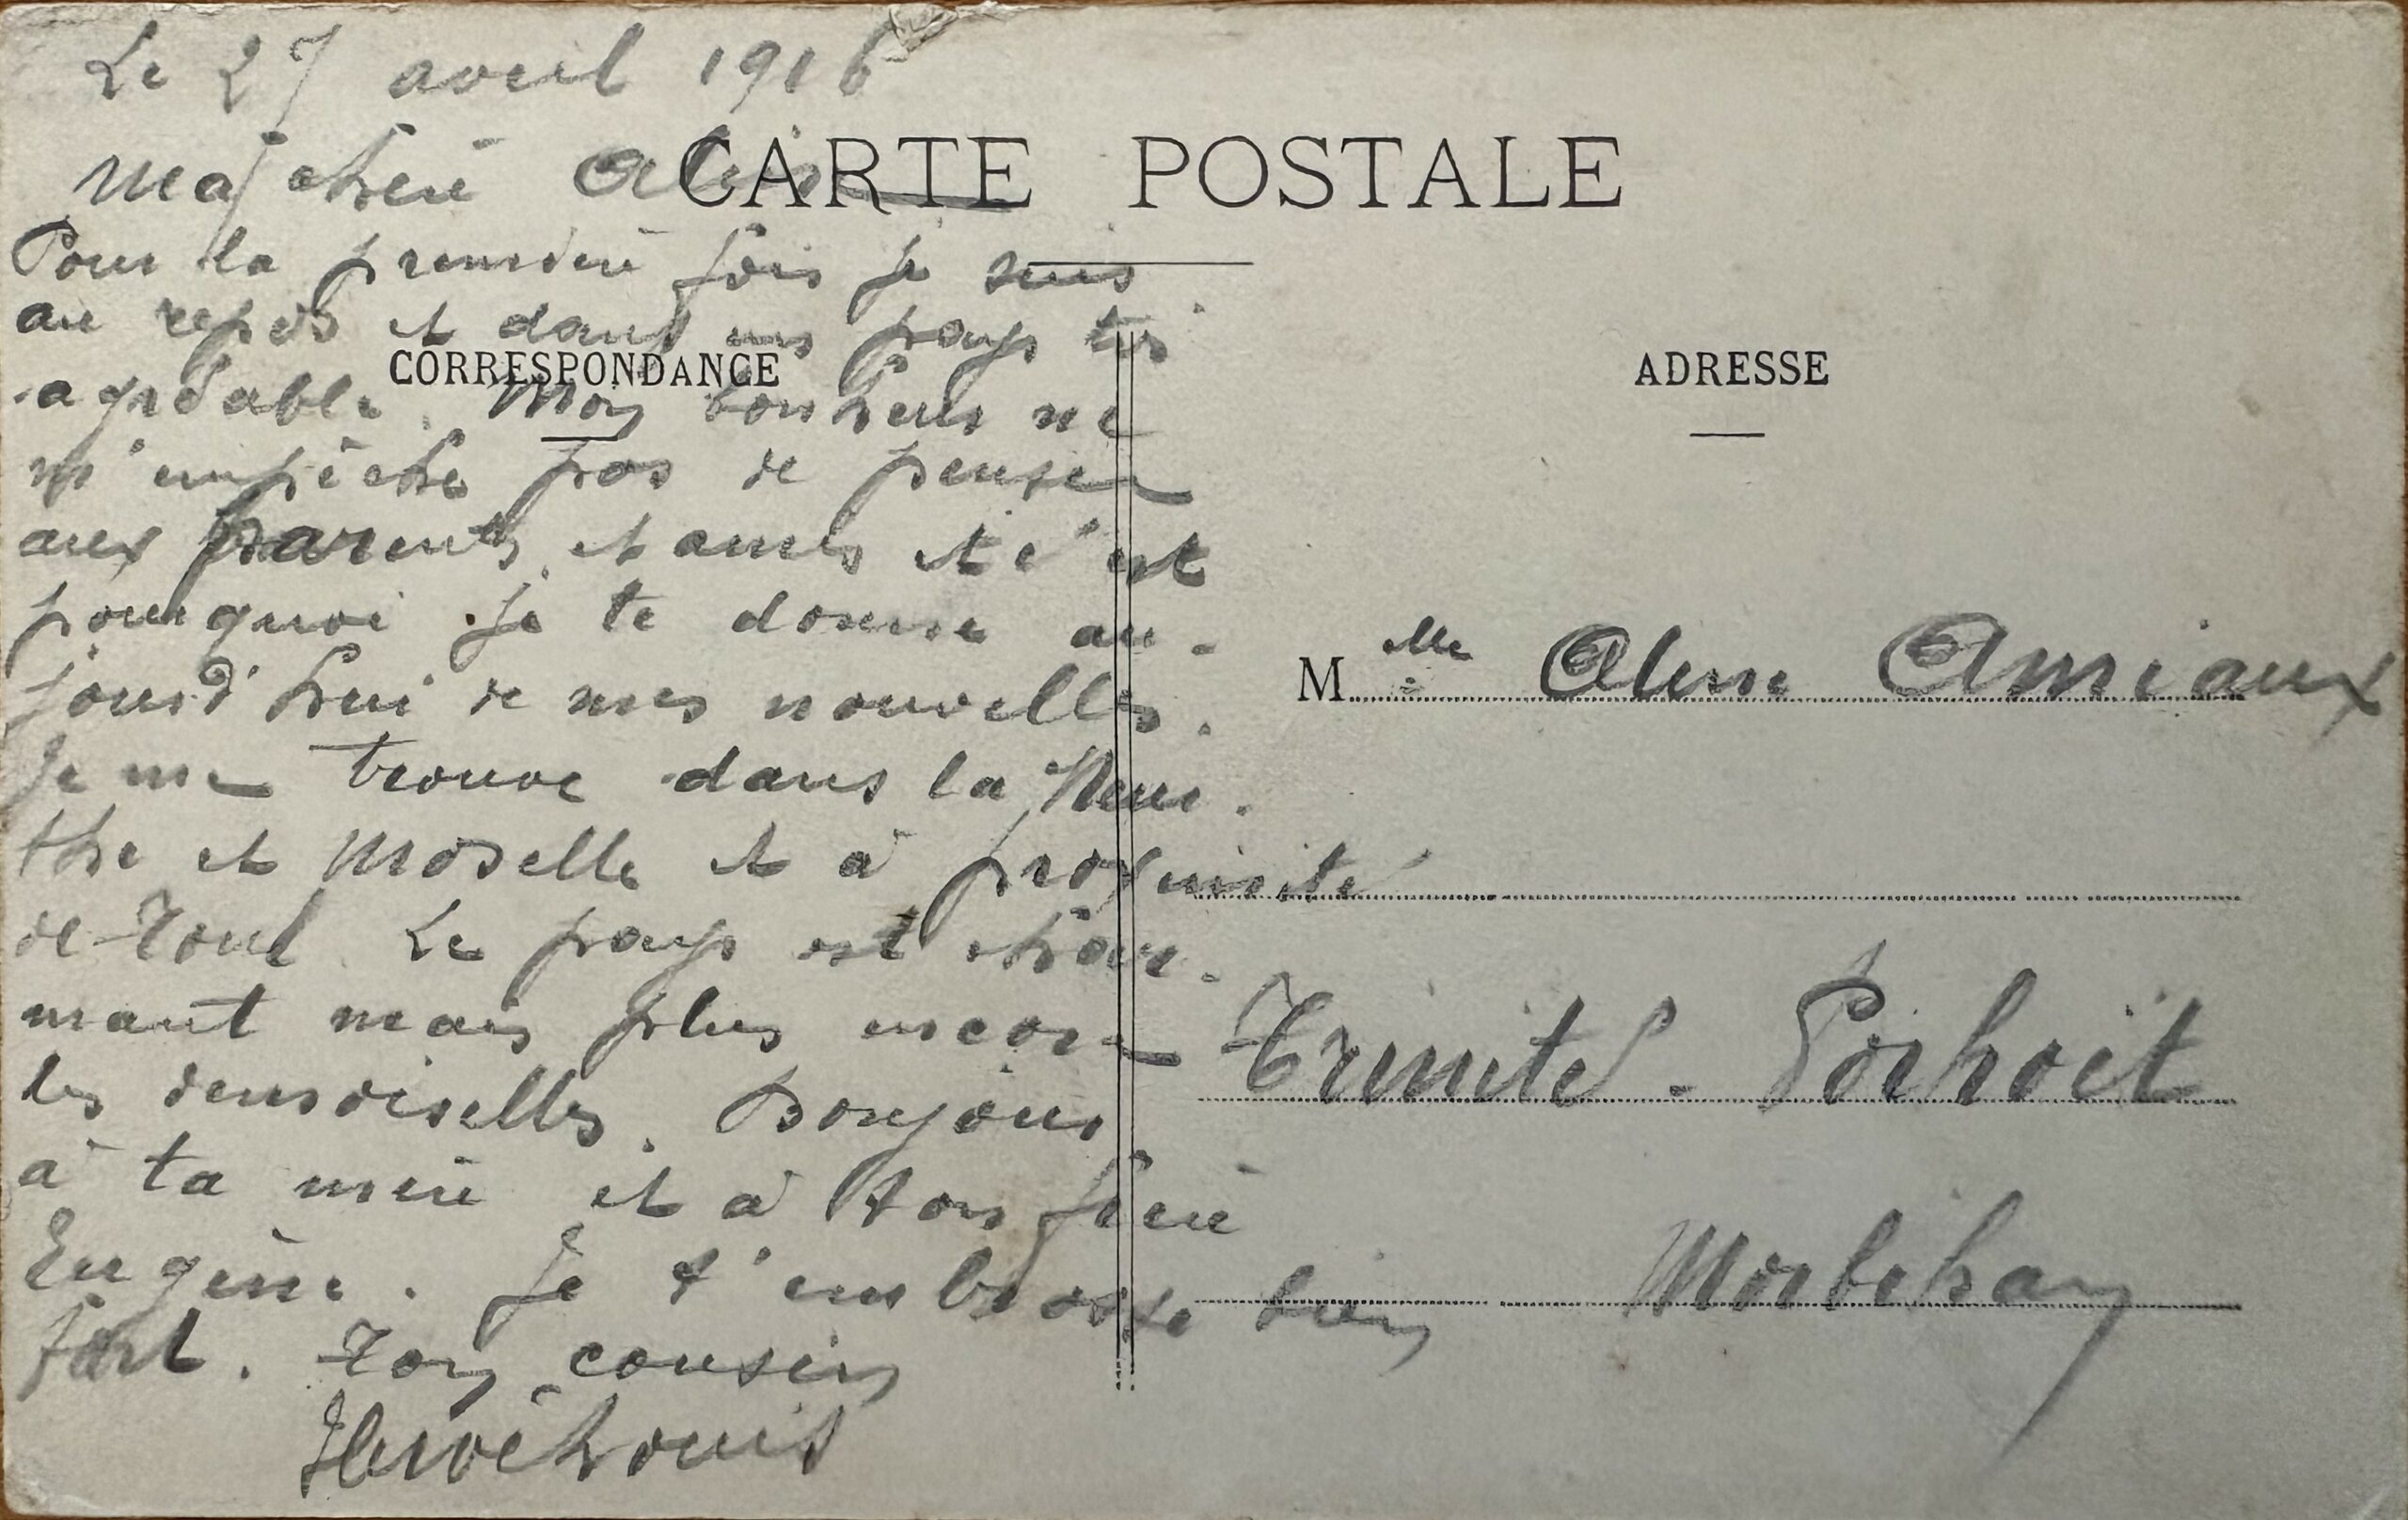 Le 27 avril 1916
CARTE POSTALE
Ma chère Aline
Pour la première fois je suis
au repos et dans un pays très
CORRESPONDANCE
agréable. Mon bonheur ne
m'empêche pas de penser
aux parents et amis et c'est
pourquoi je te donne au-
jourd'hui de mes nouvelles.
Je me trouve dans la Meur-
the et Moselle et à proximité
de Toul. Le pays est char-
mant mais plus encore
les demoiselles. Bonjour
à ta mère et à ton frère
Eugène. Je t'embrasse bien
fort. Ton cousin
Hervé Louis
ADRESSE
Mlle Aline Amiaux
Trinité-Porhoët
Morbihan